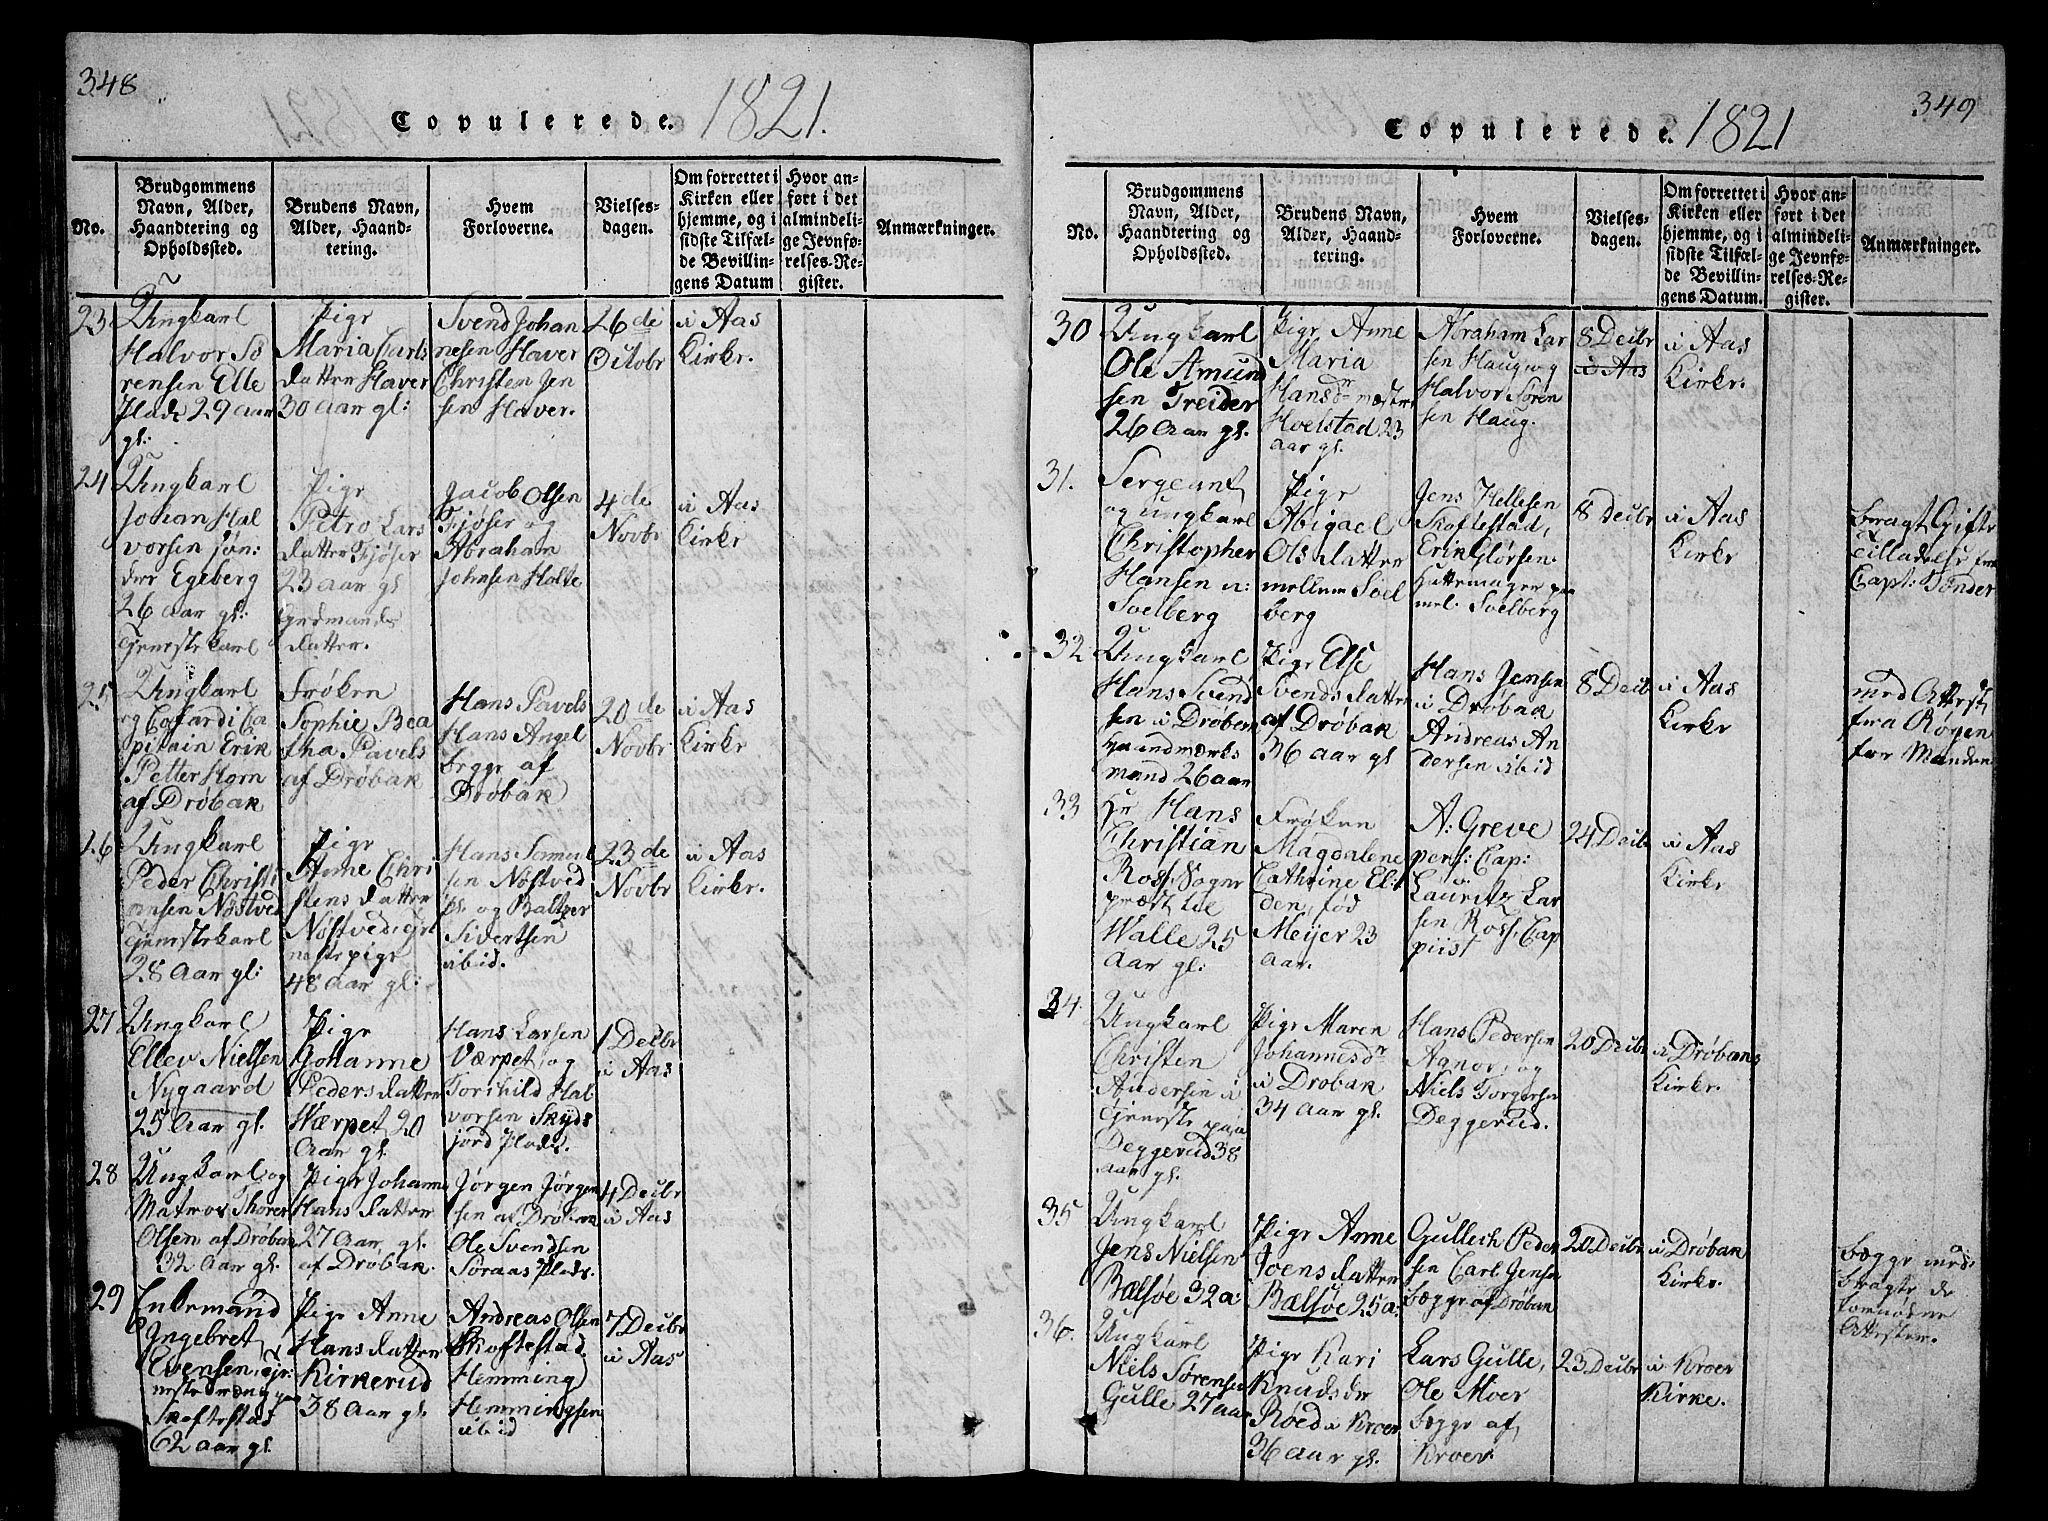 348
Copulerede. 1821.
No.
Brudgommens
Navn, Alder,
Haandtering og
Opholdssted.
Brudens Navn,
Alder, Haand-
tering.
Hvem
Forloverne.
Vielses-
dagen.
Om forrettet i
Kirken eller
hjemme, og i
sidste Tilfæl-
de Bevillin-
gens Datum
Hvor an-
ført i det
almindeli-
ge Jevnfø-
relses-Re-
gister.
Anmærkninger.
23.
Ungkarl
Halvor Sö
rensen Elle
Plads 29 aar
gl:
Pige
Maria Carls
datter Haver
30 aar gl:
Svend Johan
nesen Haver
Christen Jen
sen Haver.
26 de
Octobr
i Aas
Kirke.
24
Ungkarl
Johan Hal
vorsen søn:
dre Egeberg
26 aar gl:
Tjenestekarl
Pige
Petro Lars
datter Fjøser
23 aar gl
datter.
Jacob Olsen
Fjøser og
Abraham
Johnsen Holte
4 de
Novbr
i Aas
Kirke
25
Ungkarl
og
pitain Erik
Petter Horn
af Drøbak
Frøken
Sophie Bea
tha Pavels
af Drøbak
Hans Pavels
Hans Angel
begge af
Drøbak
20 de
Novbr
i Aas
Kirke
26
Ungkarl
Peder Christi
ansen Nøstved
Tjenestekarl
28 aar gl:
Pige
Anne Chri
stens datter
Nøstved tje
nestepige
48 aar gl:
Hans Samuel
sen Nøstved
Pl: og Baltzer
Sivertsen
ibid.
23 de
Novbr
i Aas
Kirke.
27
Ungkarl
Ellev Nielsen
Nygaard
25 Aar gl.
Pige
Johanne
Peders datter
Værpet 20
Aar gl.
Hans Larsen
Værpet, og
Torchild Hal
vorsen Skyds
jord Plads.
1 Decbr
i Aas
28
Ungkarl og
Matros Thorer
Olsen af Drøbak
32 aar gl.
Pige Johanne
Hans datter
27 Aar gl.
af Drøbak.
Jørgen Jørgen
sen af Drøbak
Ole Svendsen
Soraas Plads.
4 Decbr
i Aas
29
Enkemand
Ingebret
Evensen, tje:
nestedreng paa
Skoftestad
62 aar gl.
Pige Anne
Hans datter
Kirkerud
38 Aar gl.
Andreas Olsen
Skoftestad
Hemming
Hemmingsen
ibid
7 Decbr
i Aas
349
Copulerede. 1821
No.
Brudgommens
Navn, Alder,
Haandtering og
Opholdssted.
Brudens Navn,
Alder, Haand-
tering.
Hvem
Forloverne.
Vielses-
dagen.
Om forrettet i
Kirken eller
hjemme, og i
sidste Tilfæl-
de Bevillin-
gens Datum.
Hvor an-
ført i det
almindeli-
ge Jevnfø-
relses-Re-
gister.
Anmærkninger.
30
Ungkarl
Ole Amund
sen Treider
26 Aar gl.
Pige Anne
Maria
Hansdr
Hvelstad 23
aar gl.
Abraham Lar
sen Haug, og
Halvor Søren
sen Haug.
8 Decbr
i Aas
i Aas
Kirke.
31.
Sergeant
og ungkarl
Christopher
Hansen i:
Solberg
Pige
Abigael
Ols datter
mellem Soel
berg
Jens Hellesen
Skoftestad,
Erik Glørsen.
Hattemager paa
mel. Solberg
8 Decbr
i Aas
Kirke
bragt Gifte
Tilladelse fra
Capt: Tønder
32
Ungkarl
Hans Svend
sen i Drøbak
Haandværks
mand 26 aar
Pige Else
Svends datter
af Drøbak
36 aar gl
Hans Jensen
i Drøbak
Andreas An
dersen ibid
8 Decbr
i Aas
Kirke
med Attest
fra Røgen
for Manden
33
Hr Hans
Christian
Ross, Sogne
præst til
Walle 25
Aar gl:
Frøken
Magdalene
Cathrine El:
den, fød
Meijer 23
aar.
A: Greve
pers: Cap:
Lauritz Lar
sen Ross, Cap
piist
24 Decbr
i Aas
Kirke
34.
Ungkarl
Christen
Andersen i
Tjeneste paa
Deggerud 38
aar gl.
Pige Maren
Johannesdr
i Drøbak
34 Aar gl.
Hans Pedersen
Aanor, og
Niels Torgersen
Deggerud.
20 Decbr
i Drøbaks
Kirke.
35
Ungkarl
Jens Nielsen
Bælsøe 32 a:
Pige Anne
Joens datter
Bælsøe 25 a:
Gullich Peder
sen Carl Jensen
begge af Drøbak
20 Decbr
i Drøbak
Kirke.
begge med
bragte de
fornødne
Attester.
36.
Ungkarl
Niels Sørensen
Gulle 27 aar
Pige Kari
Knudsdr
Røed i Kroer
36 aar gl.
Lars Gulle,
Ole Moer
begge af
Kroer.
23 Decbr
i Kroer
Kirke.